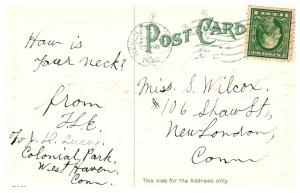 POST CARD
How is
your neck?
from
F.L.E.
c/o J. H. Lucas
Colonial Park,
West Haven,
Conn.
Miss. S. Wilcox.
#106 Shaw St,
New London,
Conn
This side for the Address only